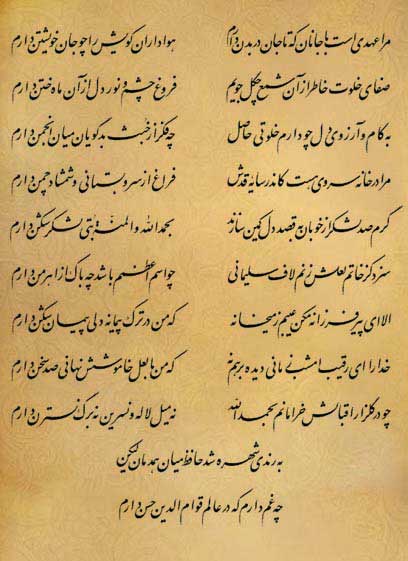 مرا عهدی است با جانان که تا جان در بدن دارم هواداران کویش را چو جان خویشتن دارم
صفای خلوت خاطر از آن شمع چگل جویم فروغ چشم و نور دل از آن ماه ختن دارم
به کام و آرزوی دل چو دارم خلوتی حاصل چه فکر از خبث بدگویان میان انجمن دارم
مرا در خانه سروی هست کاندر سایه قدش فراغ از سرو بستانی و شمشاد چمن دارم
گرم صد لشکر از خوبان به قصد دل کمین سازند بحمد الله و المنة بتی لشکر شکن دارم
سزد کز خاتم لعلش زنم لاف سلیمانی چو اسم اعظمم باشد چه باک از اهرمن دارم
الا ای پیر فرزانه مکن عیبم ز میخانه که من در ترک پیمانه دلی پیمان شکن دارم
خدا را ای رقیب امشب زمانی دیده بر هم نه که من با لعل خاموشش نهانی صد سخن دارم
چو در گلزار اقبالش خرامانم بحمد الله نه میل لاله و نسرین نه برگ نسترن دارم
به رندی شهره شد حافظ میان همدمان لیکن
چه غم دارم که در عالم قوام الدین حسن دارم